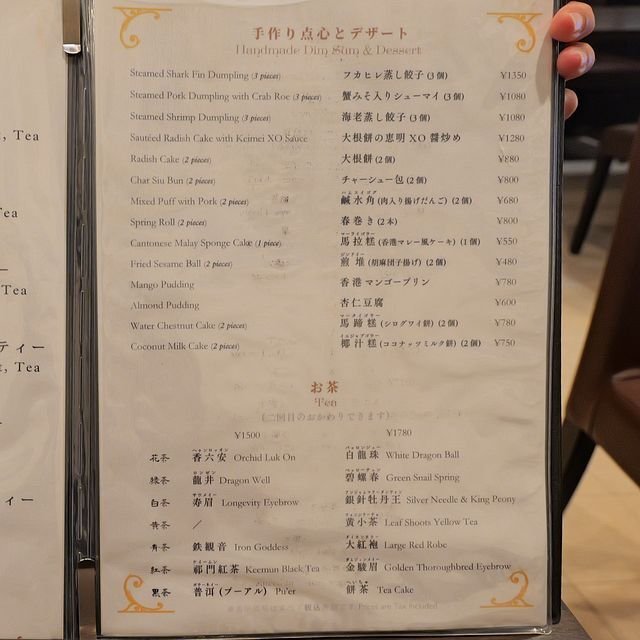 , Tea
Tea
Tea
ティー
t, Tea
ィー
手作り点心とデザート
Handmade Dim Sum & Dessert
Steamed Shark Fin Dumpling (3 pieces) フカヒレ蒸し餃子 (3個) ¥1350
Steamed Pork Dumpling with Crab Roe (3 pieces) 蟹みそ入りシューマイ (3個) ¥1080
Steamed Shrimp Dumpling (3 pieces) 海老蒸し餃子 (3個) ¥1080
Sautéed Radish Cake with Keimei XO Sauce 大根餅の恵明XO醤炒め ¥1280
Radish Cake (2 pieces) 大根餅 (2個) ¥880
Char Siu Bun (2 pieces) チャーシュー包 (2個) ¥800
Mixed Puff with Pork (2 pieces) 鹹水角 (肉入り揚げだんご) (2個) ¥680
Spring Roll (2 pieces) 春巻き (2本) ¥800
Cantonese Malay Sponge Cake (1 piece) 馬拉糕 (香港マレー風ケーキ) (1個) ¥550
Fried Sesame Ball (2 pieces) 煎堆 (胡麻団子揚げ) (2個) ¥480
Mango Pudding 香港マンゴープリン ¥780
Almond Pudding 杏仁豆腐 ¥600
Water Chestnut Cake (2 pieces) 馬蹄糕 (シログワイ餅) (2個) ¥780
Coconut Milk Cake (2 pieces) 椰汁糕 (ココナッツミルク餅) (2個) ¥750
お茶
Tea
(二回目のおかわりできます)
¥1500 ¥1780
花茶 香六安 Orchid Luk On 白龍珠 White Dragon Ball
緑茶 龍井 Dragon Well 碧螺春 Green Snail Spring
白茶 寿眉 Longevity Eyebrow 銀針牡丹王 Silver Needle & King Peony
黄茶 / 黄小茶 Leaf Shoots Yellow Tea
青茶 鉄観音 Iron Goddess 大紅袍 Large Red Robe
紅茶 祁門紅茶 Keemun Black Tea 金駿眉 Golden Thoroughbred Eyebrow
黒茶 普洱 (プーアル) Pu'er 餅茶 Tea Cake
税込 Prices are Tax Included